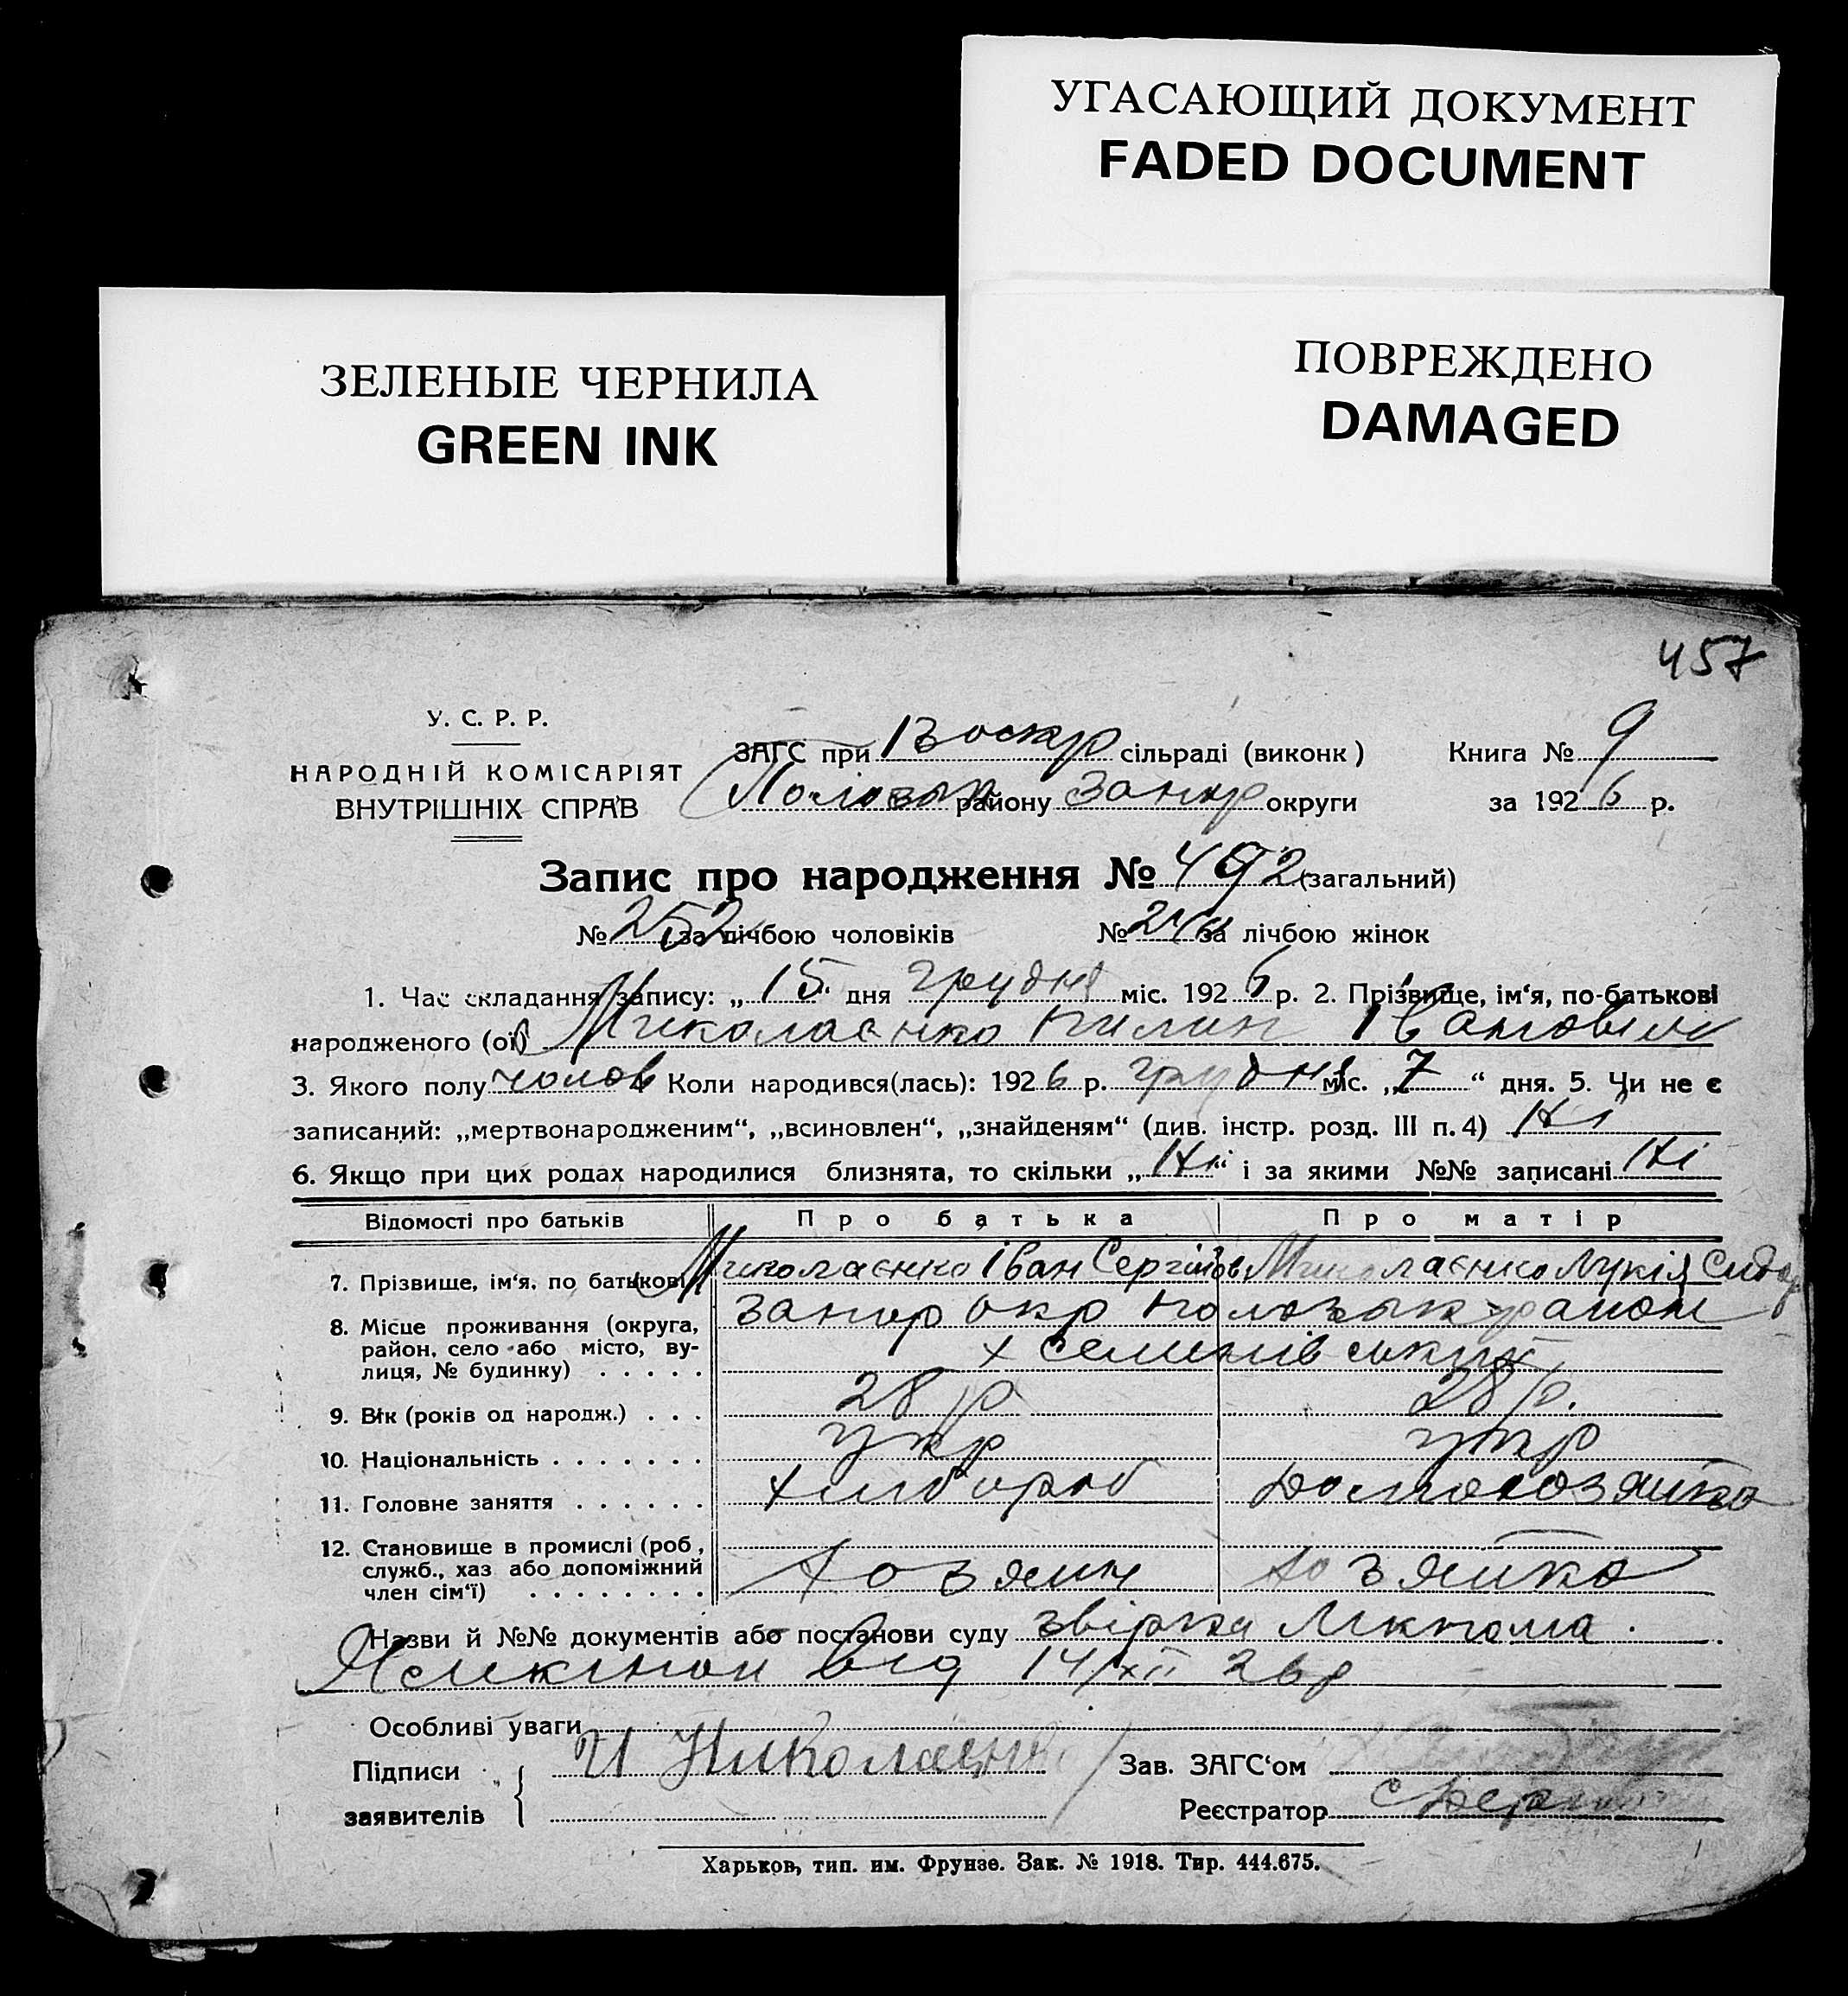 УГАСАЮЩИЙ ДОКУМЕНТ
FADED DOCUMENT
ЗЕЛЕНЫЕ ЧЕРНИЛА
GREEN INK
ПОВРЕЖДЕНО
DAMAGED
457
У. С. Р. Р.
НАРОДНІЙ КОМІСАРІЯТ
ВНУТРІШНІХ СПРАВ
ЗАГС при Воскр сільраді (виконк) Книга № 9
Пологівськ району Запор округи за 1926 р.
Запис про народження № 492 (загальний)
№ 252 за лічбою чоловіків № 240 за лічбою жінок
1. Час складання запису: „15“ дня грудня міс. 1926 р. 2. Прізвище, ім‘я, по-батькові
народженого (ої) Миколаєнко Пилип Іванович
3. Якого полу чолов 4 Коли народився(лась): 1926 р. грудня міс. „7“ дня. 5. Чи не є
записаний: „мертвонародженим“, „всиновлен“, „знайденям“ (див. інстр. розд. III п. 4) Ні
6. Якщо при цих родах народилися близнята, то скільки „Ні“ і за якими №№ записані Ні
Відомості про батьків Про батька Про матір
7. Прізвище, ім‘я, по батькові Миколаєнко Іван Сергійов Миколаєнко Лукія Сидор
8. Місце проживання (округа, район, село або місто, вулиця, № будинку) Запор окр район
х Семенівський
9. Вік (років од народж.) 28 р 28 р.
10. Національність укр укр
11. Головне заняття хлібороб Домохозяйка
12. Становище в промислі (роб, служб., хаз або допоміжний член сім‘ї) хозяин хозяйка
Назви й №№ документів або постанови суду звірка
від 14/XII 26 р
Особливі уваги
Підписи заявителів И Николаєнк
Зав. ЗАГС‘ом
Реєстратор
Харьков, тип. им. Фрунзе. Зак. № 1918. Тир. 444.675.